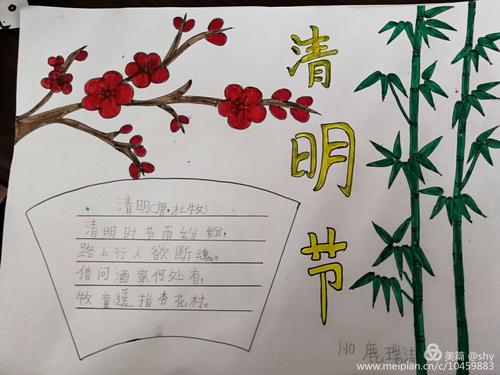 清明节
清明(唐·杜牧)
清明时节雨纷纷，
路上行人欲断魂。
借问酒家何处有，
牧童遥指杏花村。
鹿瑞
美篇 @shy
www.meipian.cn/c/10459883